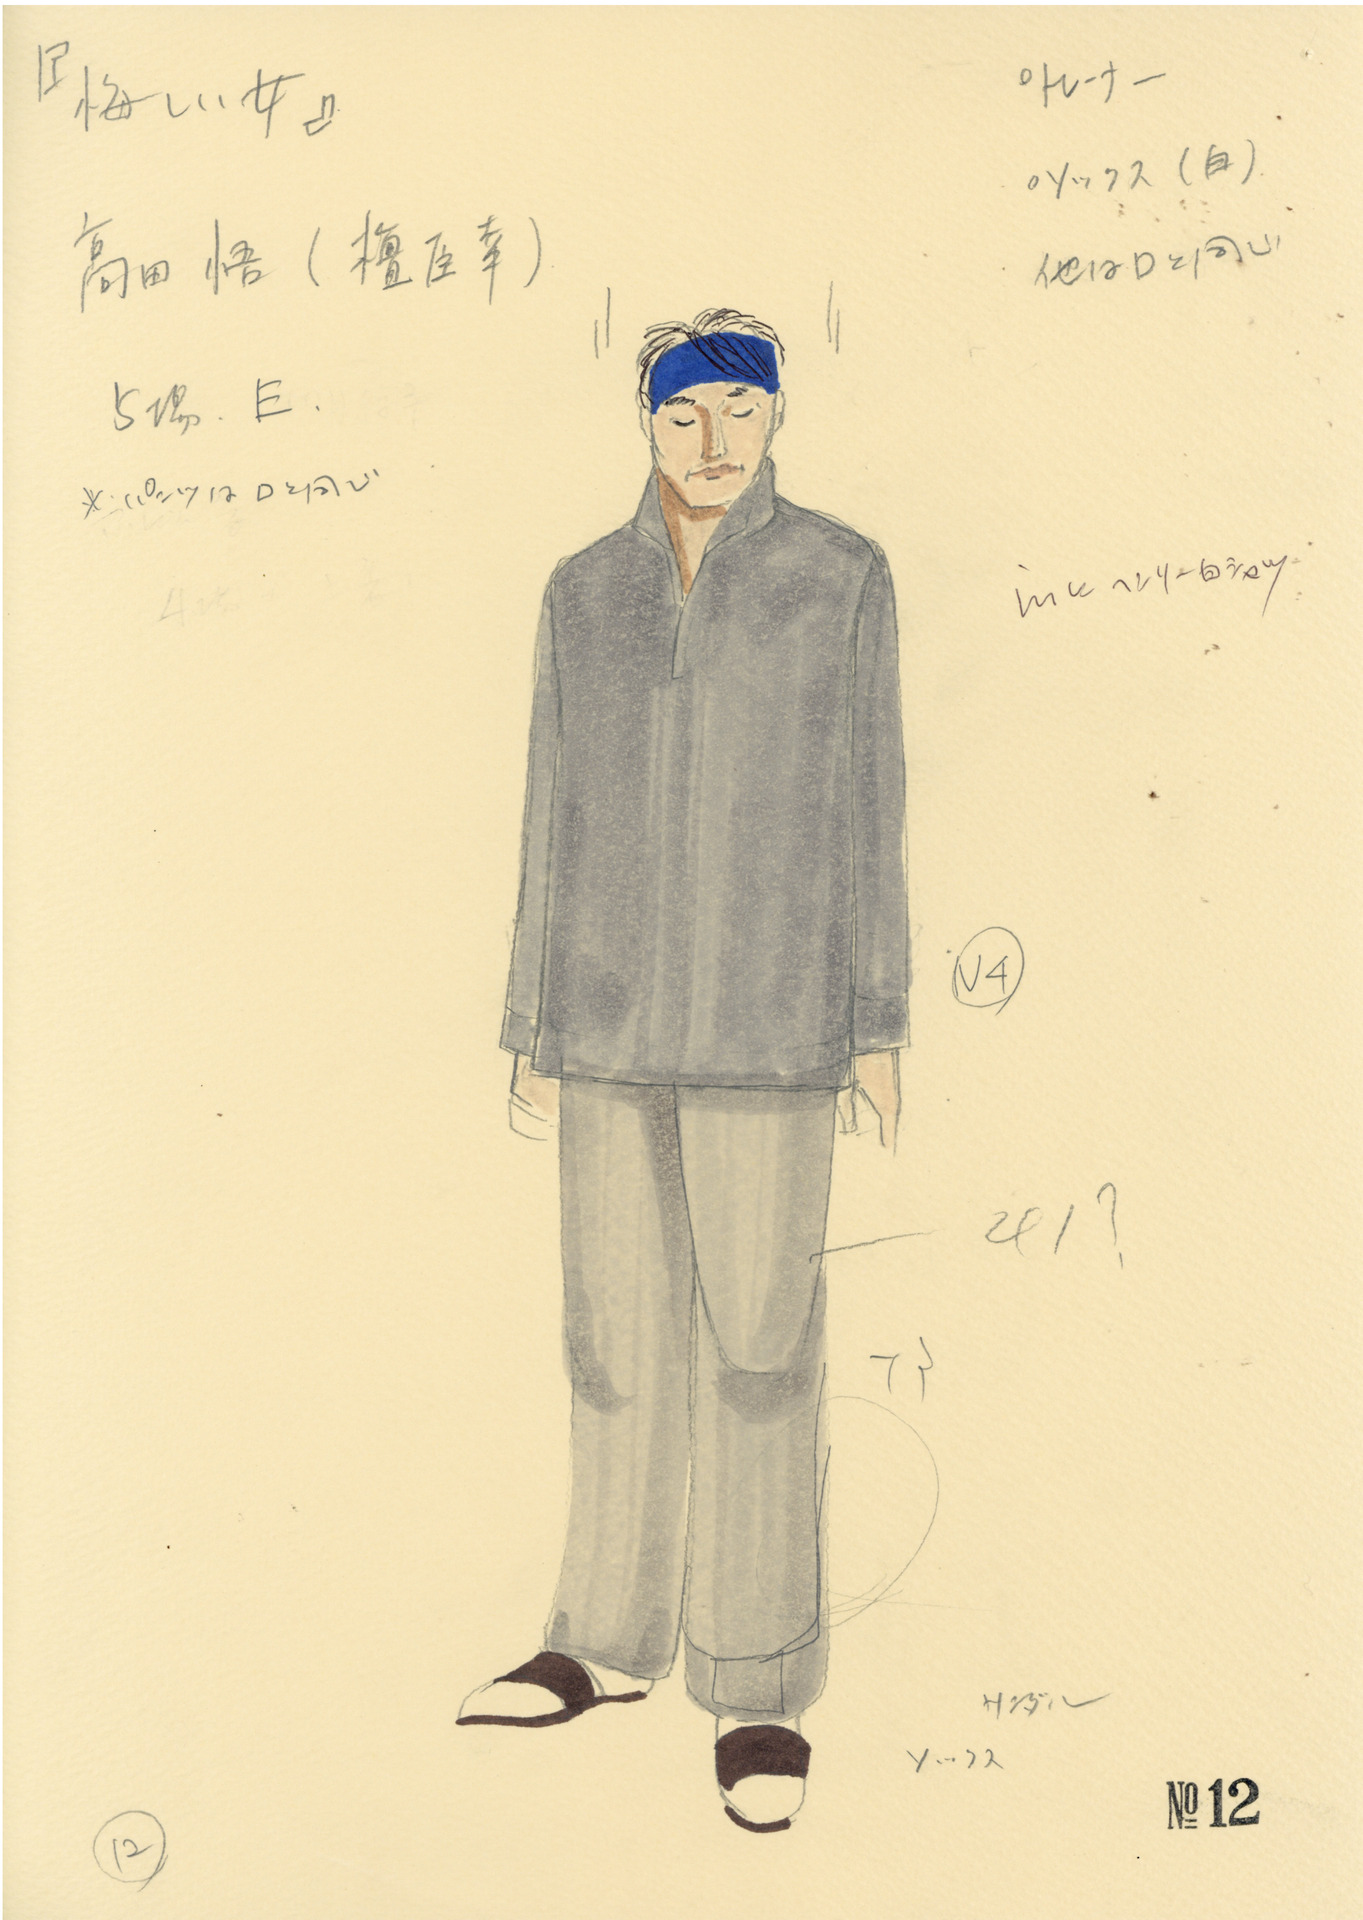 『悔しい女』
高田 悟 (檀臣幸)
5場. E.
※パンツは Dと同じ
○トレーナー
○ソックス (白)
他は Dと同じ
inに ヘンリー白シャツ
N4
サンダル
ソックス
№ 12
12